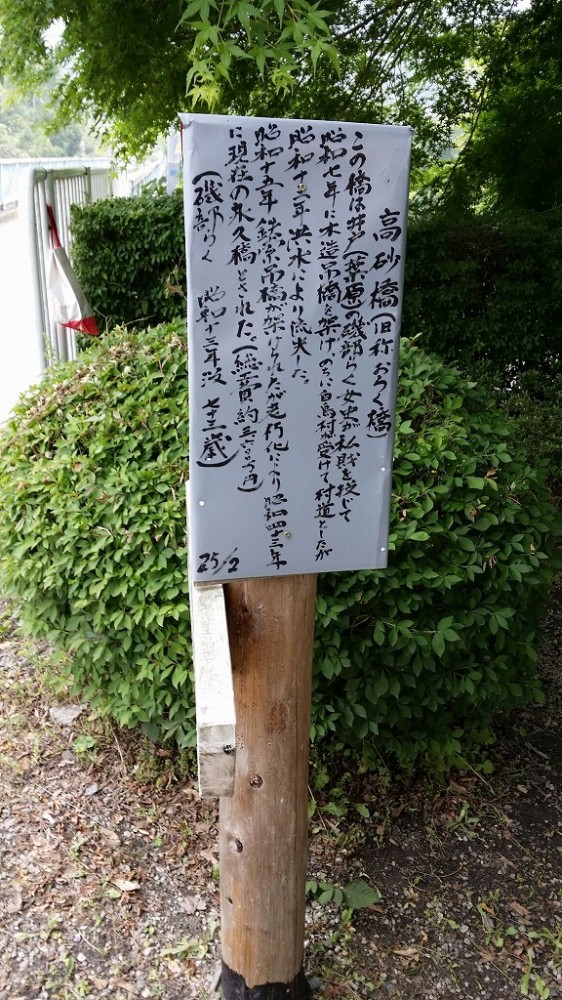 高砂橋(旧称おらく橋)
この橋は井戸(葉原)の磯部らく女史が私財を投じて
昭和七年に木造吊橋を架け のちに白鳥村が受けて村道としたが
昭和十三年 洪水により流失した。
昭和十五年 鉄索吊橋が架けられたが老朽化により昭和四十三年
に現在の永久橋とされた。(総工費約三六〇〇万円)
(磯部らく 昭和十三年没 七十三歳)
25/2